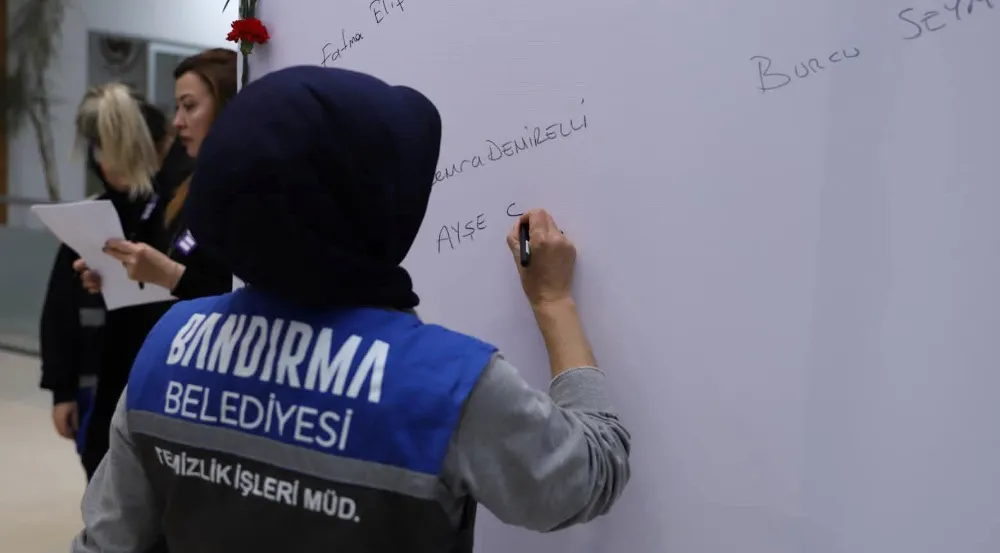 Fatma Elif
BURCU SEYM
DEMİRELLİ
AYŞE C
BANDIRMA
BELEDİYESİ
TEMİZLİK İŞLERİ MÜD.